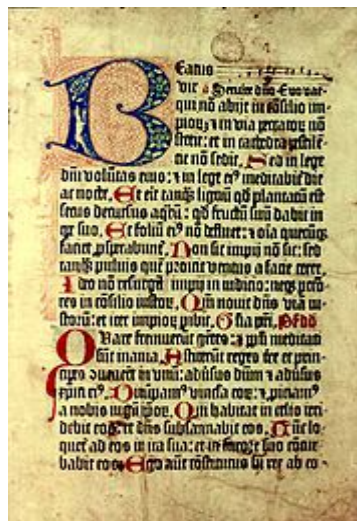 Beatus
vir Seruite dño Euouae
qui nõ abijt in cõsilio im-
pioꝝ ⁊ in via peccatoꝝ nõ
stetit: et in cathedra pestilē-
cie nõ sedit. Sed in lege
dñi volũtas eius: ⁊ in lege eiꝰ meditabit̃ die
ac nocte. Et erit tanqꝫ lignũ qđ plantatũ est
secus decursus aqꝝ: qđ fructũ suũ dabit in
tꝑe suo. Et foliũ eiꝰ nõ defluet: ⁊ oĩa quecũqꝫ
faciet ꝓsperabunt̃. Non sic impij nõ sic: sed
tanqꝫ puluis quẽ proicit ventus a facie terre.
Ideo nõ resurgũt impij in iudicio: neqꝫ pctõ-
res in cõsilio iustoꝝ. Qm̃ nouit dñs viã iu-
stoꝝ: et iter impioꝝ ꝑibit. Gl̃ia pr̃i.
Quare fremuerũt gẽtes: ⁊ ppl̃i meditati
sunt inania. Astiterũt reges tr̃e et prin-
cipes ꝯuenerũt in vnũ: aduersus dñm ⁊ aduersus
xp̃m eiꝰ. Dirũpamꝰ vincula eoꝝ: ⁊ ꝓiciamꝰ
a nobis iugũ ip̃oꝝ. Qui habitat in celis irri-
debit eos: et dñs subsannabit eos. Tũc lo-
quet̃ ad eos in ira sua: et in furore suo cõtur-
babit eos. Ego aũt cõstitutus sũ rex ab eo -